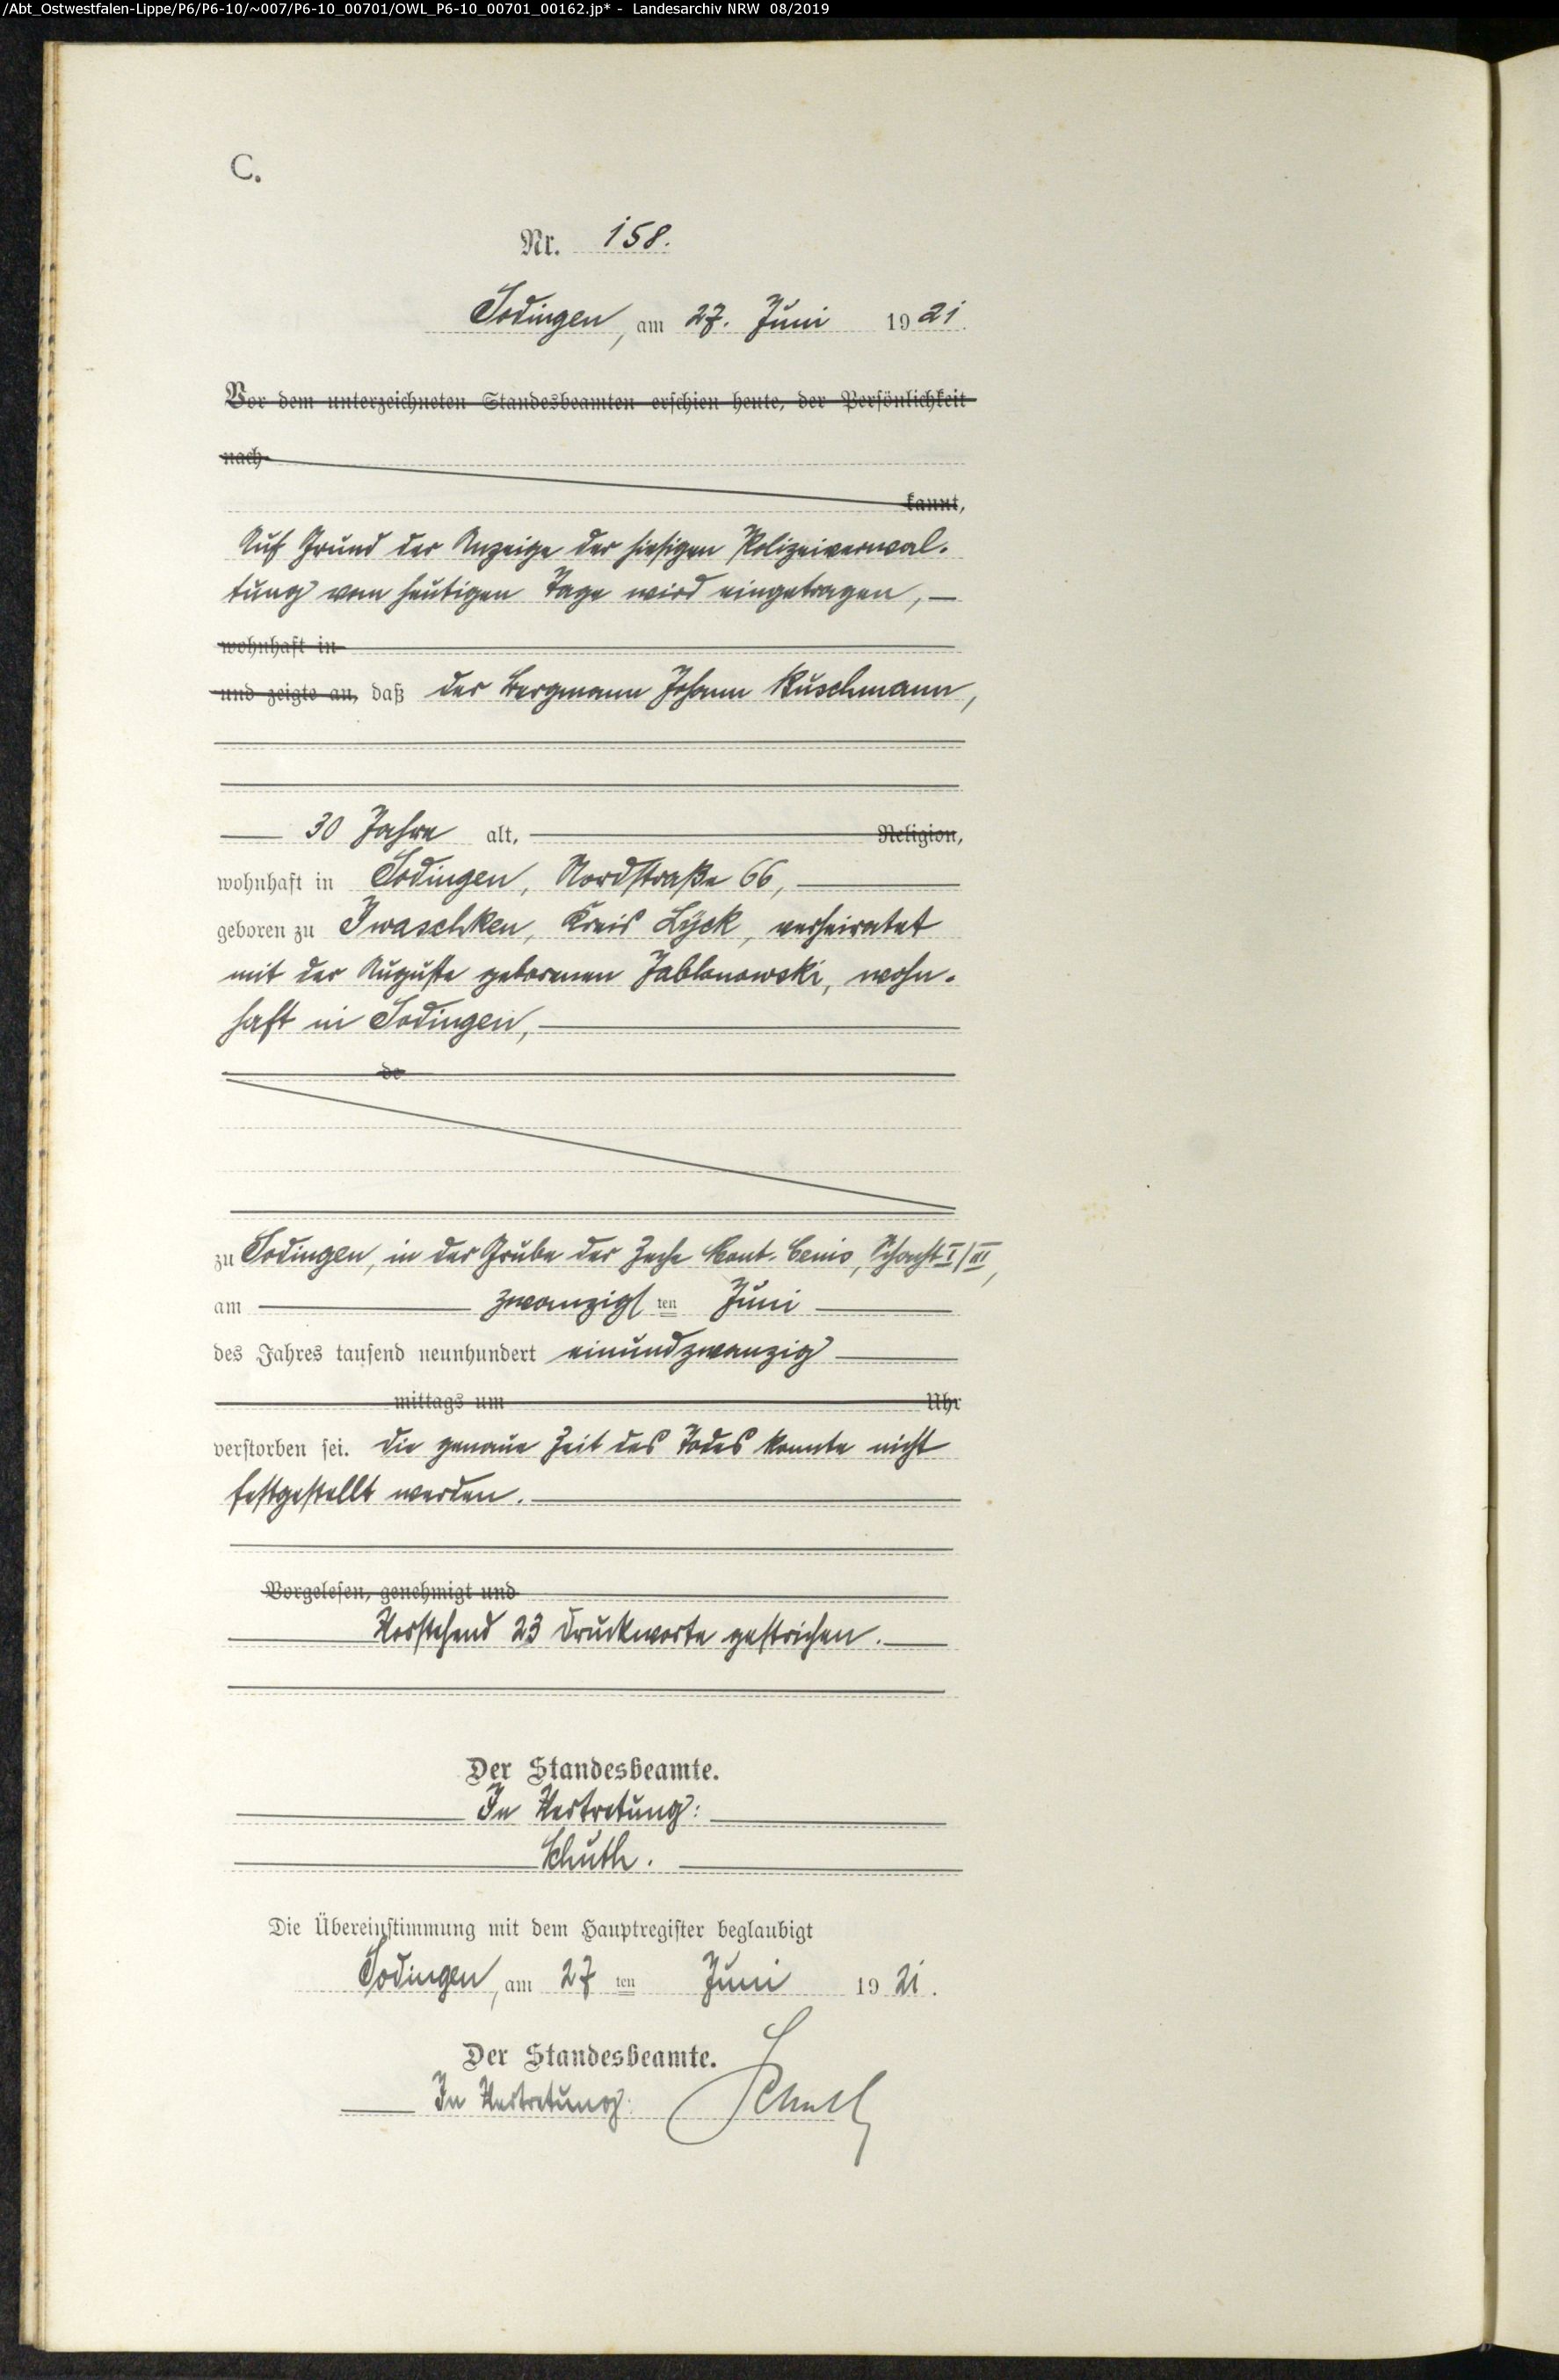 /Abt_Ostwestfalen-Lippe/P6/P6-10/~007/P6-10_00701/OWL_P6-10_00701_00162.jp* - Landesarchiv NRW 08/2019
C.
Nr. 158.
Sodingen, am 27. Juni 1921.
Vor dem unterzeichneten Standesbeamten erschien heute, der Persönlichkeit
nach
kannt,
Auf Grund der Anzeige der hiesigen Polizeiverwal-
tung vom heutigen Tage wird eingetragen, —
wohnhaft in
und zeigte an, daß der Bergmann Johann Kuschmann,
30 Jahre alt, Religion,
wohnhaft in Sodingen, Nordstraße 66,
geboren zu Iwaschken, Kreis Lyck, verheiratet
mit der Auguste geborenen Jablonowski, wohn-
haft in Sodingen,
de
zu Sodingen, in der Grube der Zeche Mont-Cenis, Schacht I/III,
am zwanzigsten Juni
des Jahres tausend neunhundert einundzwanzig
mittags um Uhr
verstorben sei. Die genaue Zeit des Todes konnte nicht
festgestellt werden.
Vorgelesen, genehmigt und
Vorstehend 23 Druckworte gestrichen.
Der Standesbeamte.
In Vertretung:
Schuth.
Die Übereinstimmung mit dem Hauptregister beglaubigt
Sodingen, am 27ten Juni 1921.
Der Standesbeamte.
In Vertretung: Schuth